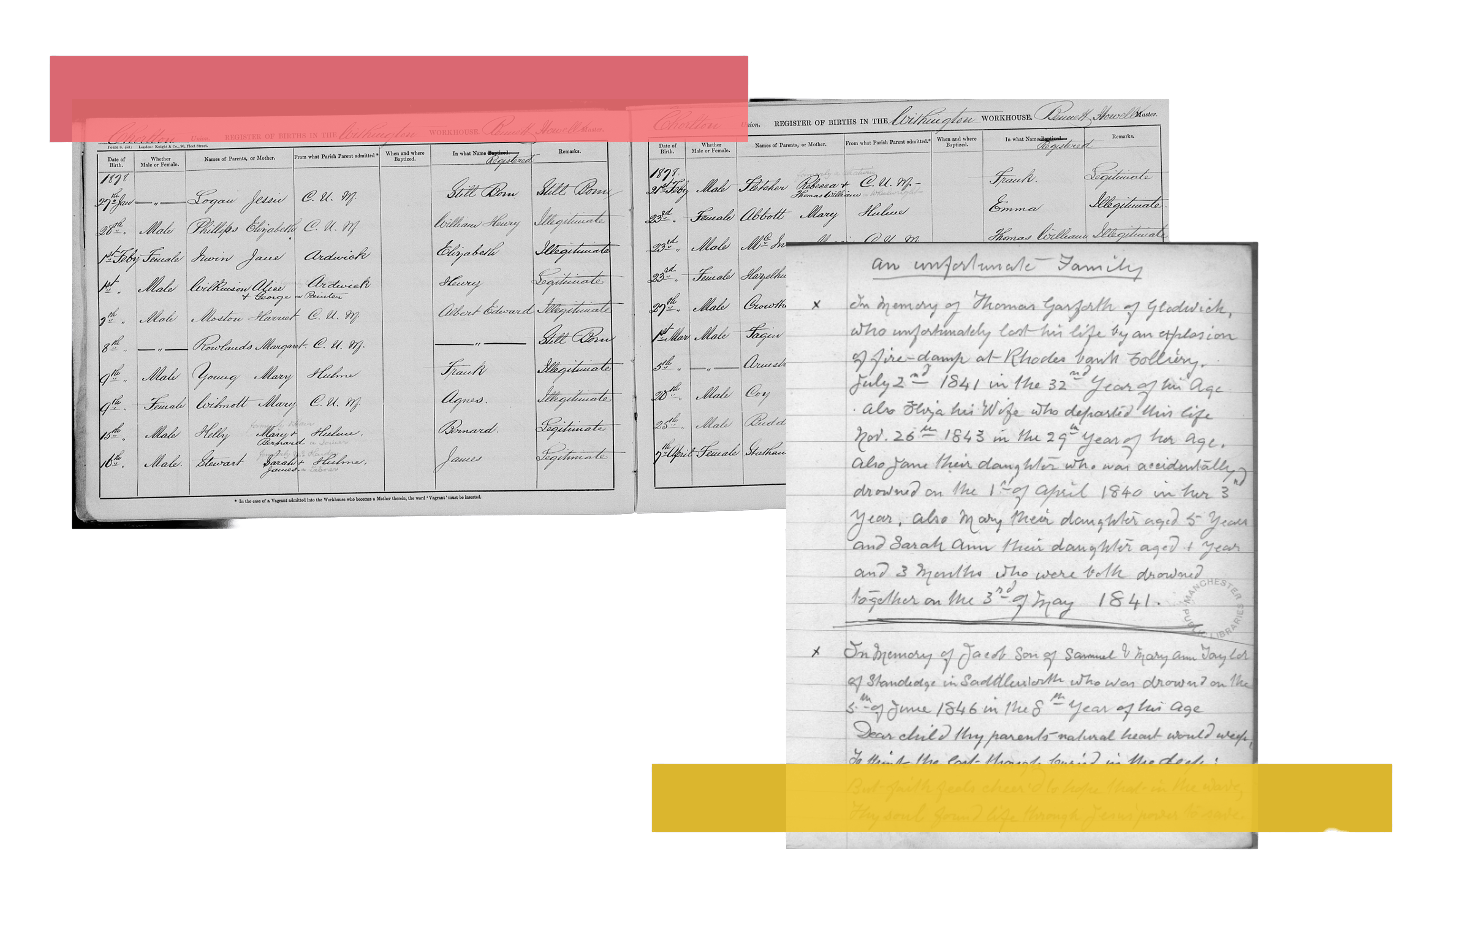 Chorlton Union. REGISTER OF BIRTHS IN THE Withington WORKHOUSE. Howell Master.
Date of Birth. Whether Male or Female. Names of Parents, or Mother. From what Parish Parent admitted.* When and where Baptized. In what Name Baptized. Registered Remarks.
1898
27th Jan —„— Logan Jessie C. U. M. Still Born Still Born
28th „ Male Phillips Elizabeth C. U. M. William Henry Illegitimate
1st Feby Female Irwin Jane Ardwick Elizabeth Illegitimate
1st „ Male Wilkinson Alice Ardwick Henry Legitimate
+ George
„ Male Moston Harriet C. U. M. Albert Edward Illegitimate
8th „ —„— Rowlands Margaret C. U. M. —„— Still Born
9th „ Male Young Mary Hulme Frank Illegitimate
9th „ Female Wilmott Mary C. U. M. Agnes. Illegitimate
15th „ Male Helly Mary + Hulme. Bernard Legitimate
Bernard
16th „ Male Stewart Sarah + Hulme. James Legitimate
James
* In the case of a Vagrant admitted into the Workhouse who becomes a Mother therein, the word "Vagrant" must be inserted.
Chorlton Union. REGISTER OF BIRTHS IN THE Withington WORKHOUSE. Howell Master.
Date of Birth. Whether Male or Female. Names of Parents, or Mother. From what Parish Parent admitted.* When and where Baptized. In what Name Baptized. Registered Remarks.
1898
21st Feby Male Fletcher Rebecca + C. U. M. Frank. Legitimate
Thomas William
23rd „ Female Abbott Mary Hulme Emma Illegitimate
23rd „ Male Thomas William Illegitimate
23rd „ Female
27th „ Male
1st Mar Male
5th „ —„—
20th „ Male Coy
25th „ Male
7th April Female
an unfortunate Family
x In Memory of Thomas Garforth of Glodwick,
who unfortunately lost his life by an explosion
of fire-damp at Rhodes bank Colliery.
July 2nd 1841 in the 32nd Year of his Age
Also Eliza his Wife who departed this life
Nov. 26th 1843 in the 29th Year of her Age.
Also Jane their daughter who was accidentally
drowned on the 1st of April 1840 in her 3rd
Year, also Mary their daughter aged 5 Years
and Sarah Ann their daughter aged 1 Year
and 3 Months who were both drowned
together on the 3rd of May 1841.
MANCHESTER PUBLIC LIBRARIES
x In Memory of Jacob Son of Samuel & Mary Ann Taylor
of Standedge in Saddleworth who was drowned on the
5th of June 1846 in the 8th Year of his Age
Dear child thy parents natural heart would weep,
To think thee lost though buried in the deep;
But faith feels cheer'd to hope that in the wave,
Thy soul found life through Jesus' power to save